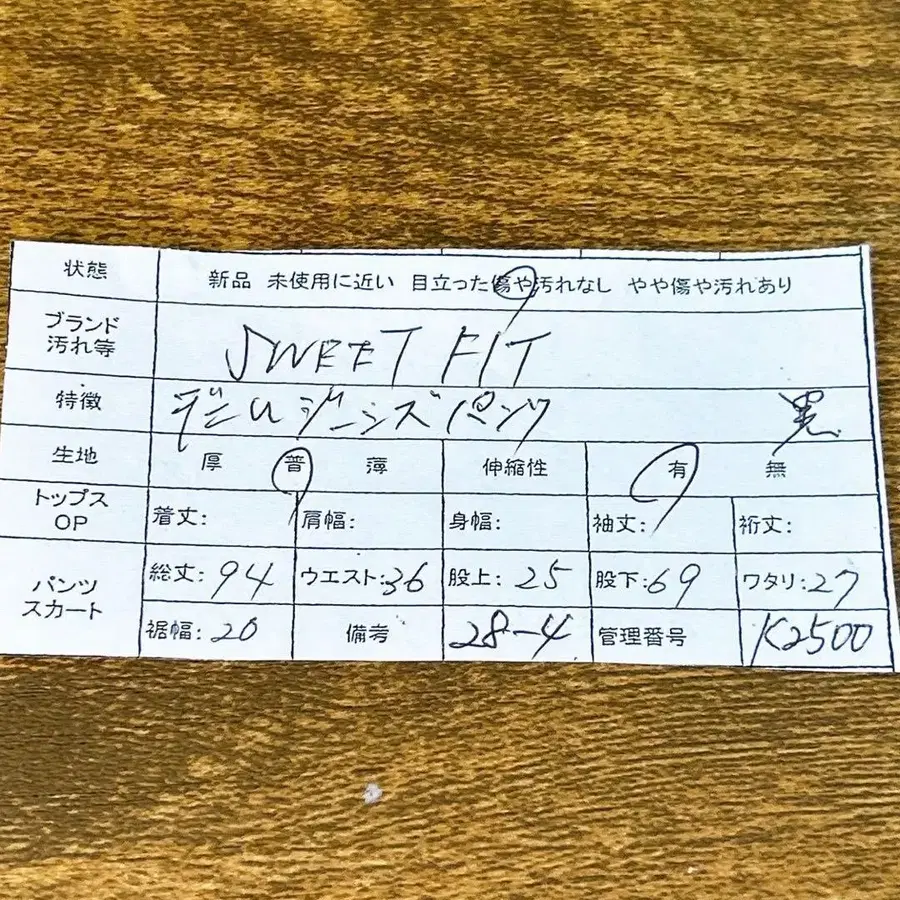 状態 新品 未使用に近い 目立った傷や汚れなし やや傷や汚れあり
ブランド
汚れ等 SWEET FIT
特徴 デニムジーンズパンツ 黒
生地 厚 普 薄 伸縮性 有 無
トップス
OP 着丈: 肩幅: 身幅: 袖丈: 裄丈:
パンツ
スカート 総丈:94 ウエスト:36 股上:25 股下:69 ワタリ:27
裾幅:20 備考 28-4 管理番号 K2500